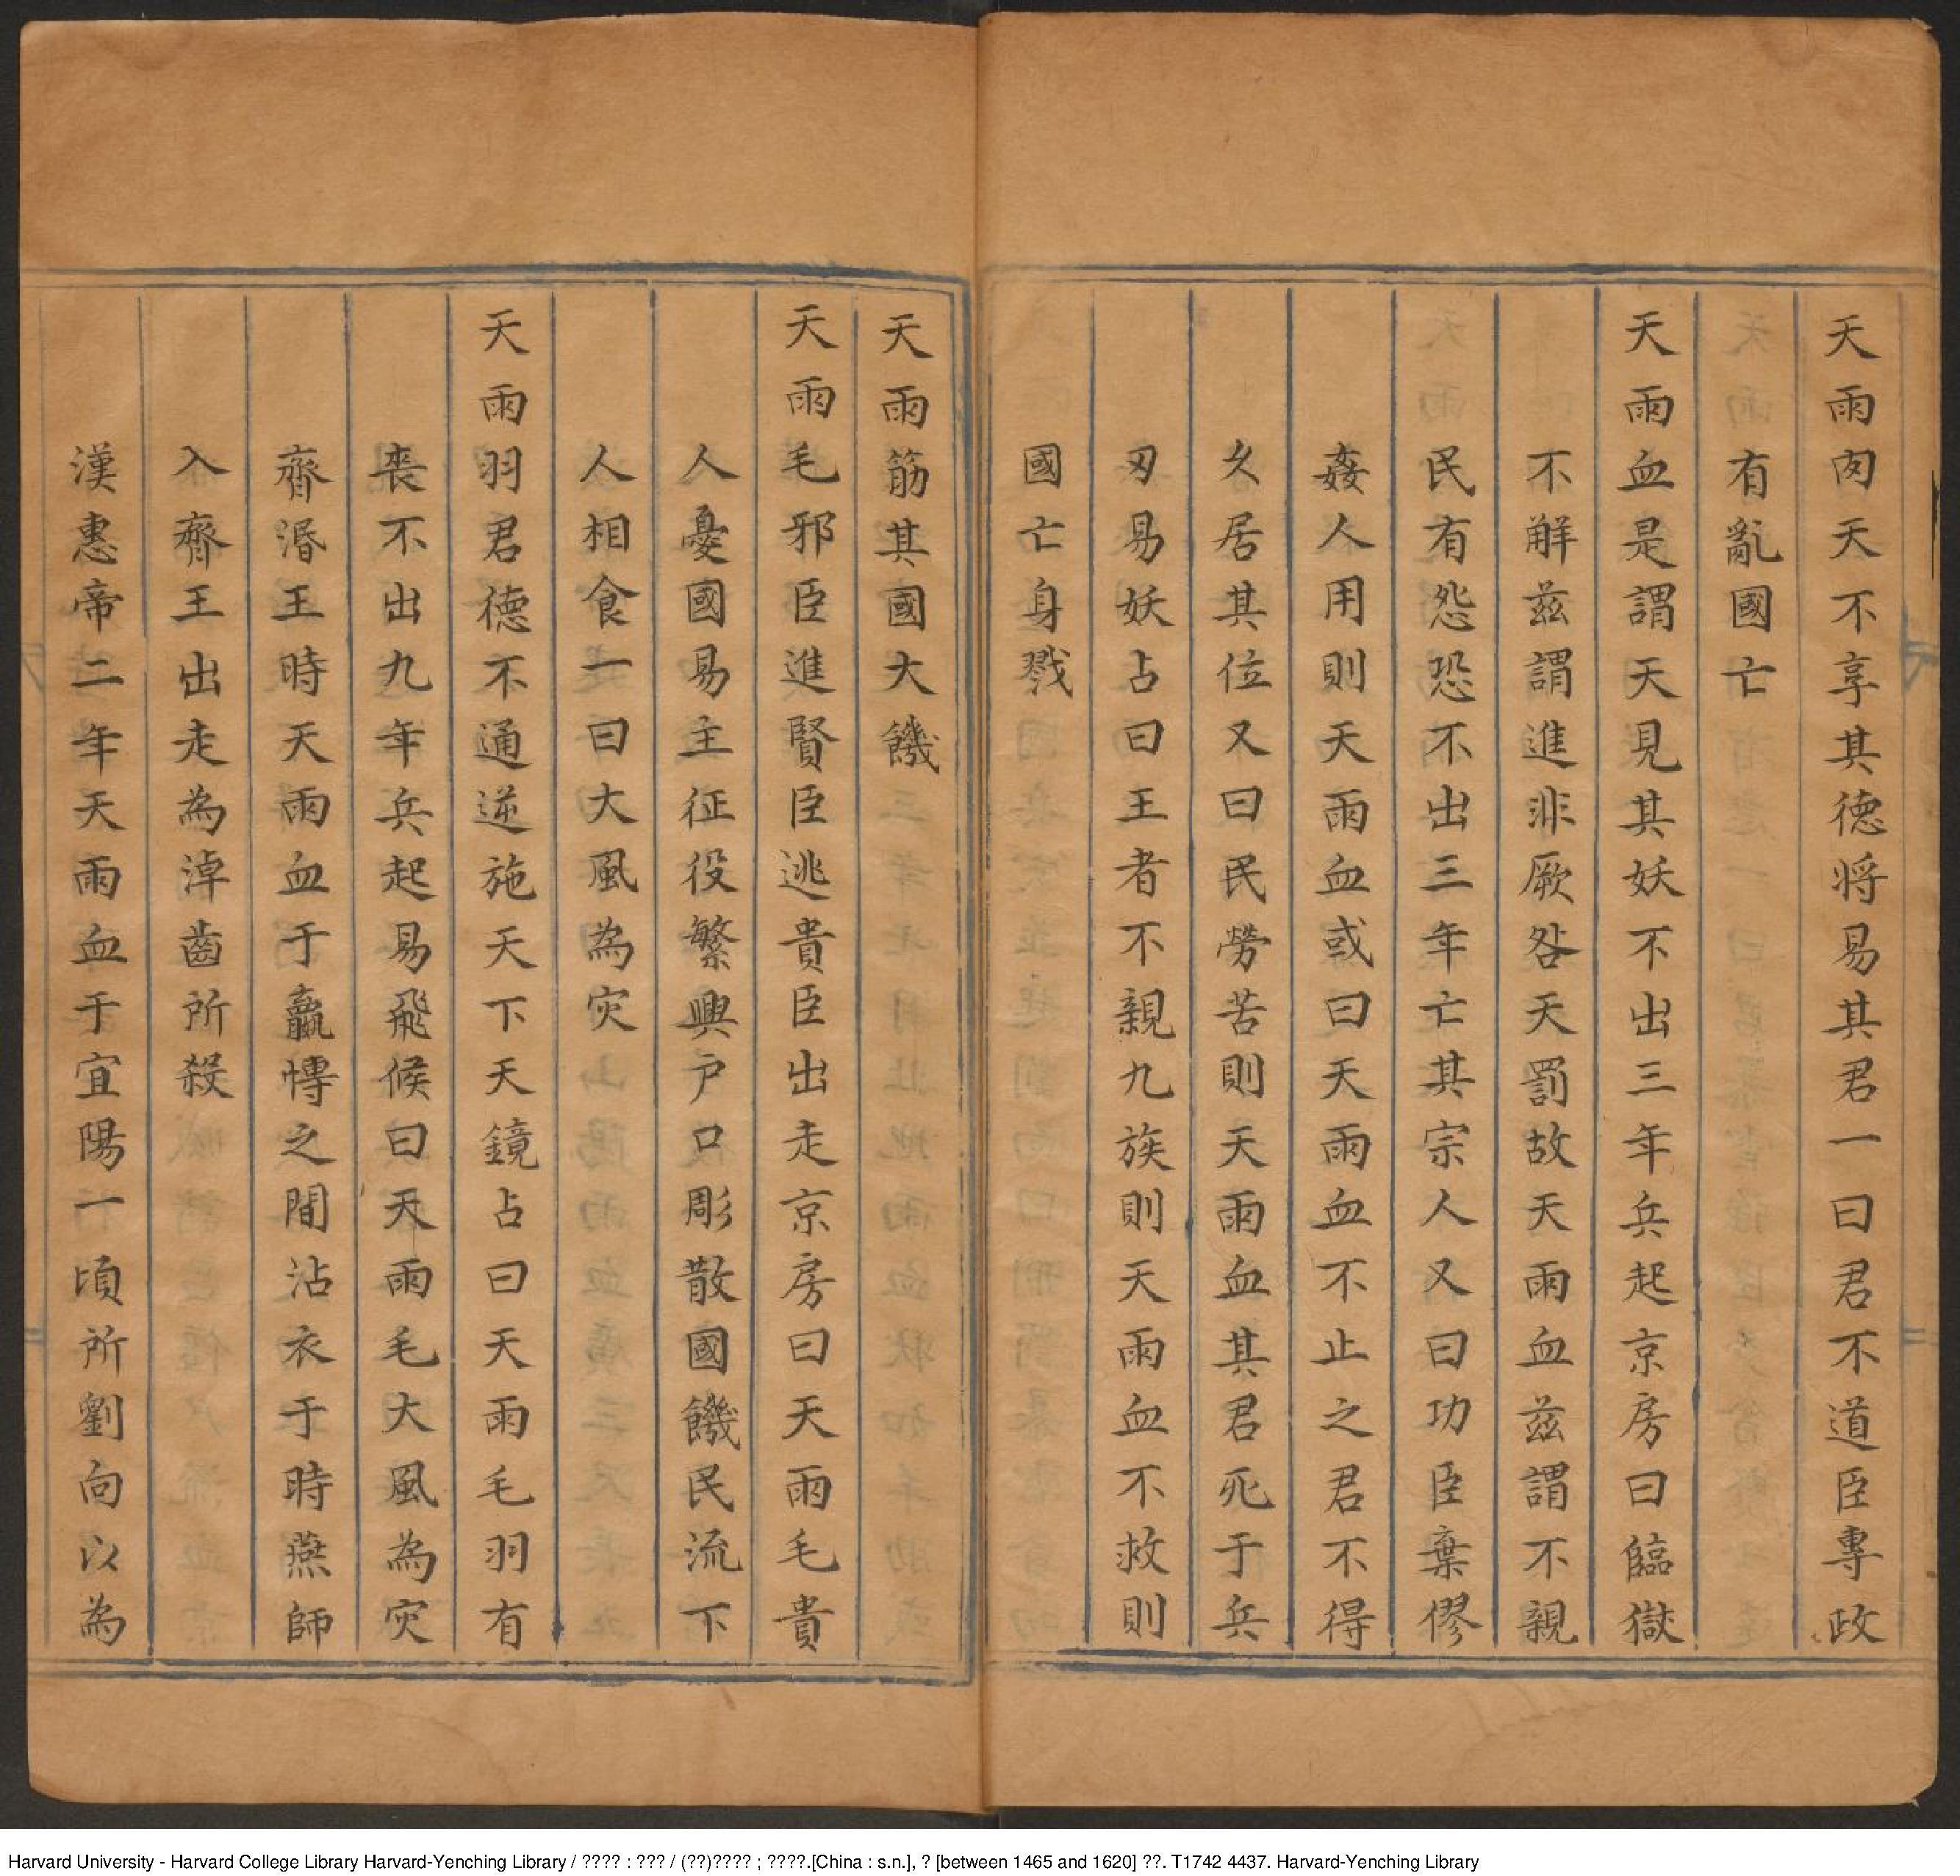 天雨肉天不享其德将易其君一曰君不道臣專政
有亂國亡
天雨血是謂天見其妖不出三年兵起京房曰臨獄
不解茲謂進非厥咎天罰故天雨血茲謂不親
民有怨恐不出三年亡其宗人又曰功臣棄僇
姦人用則天雨血或曰天雨血不止之君不得
久居其位又曰民勞苦則天雨血其君死于兵
刃易妖占曰王者不親九族則天雨血不救則
國亡身戮
天雨筋其國大饑
天雨毛邪臣進賢臣逃貴臣出走京房曰天雨毛貴
人憂國易主征役繁興户口彫散國饑民流下
人相食一曰大風為灾
天雨羽君德不通逆施天下天鏡占曰天雨毛羽有
喪不出九年兵起易飛候曰天雨毛大風為灾
齊湣王時天雨血于嬴博之間沾衣于時燕師
入齊王出走為淖齒所殺
漢惠帝二年天雨血于宜陽一頃所劉向以為
Harvard University - Harvard College Library Harvard-Yenching Library / ???? : ??? / (??)???? ; ????.[China : s.n.], ? [between 1465 and 1620] ??. T1742 4437. Harvard-Yenching Library